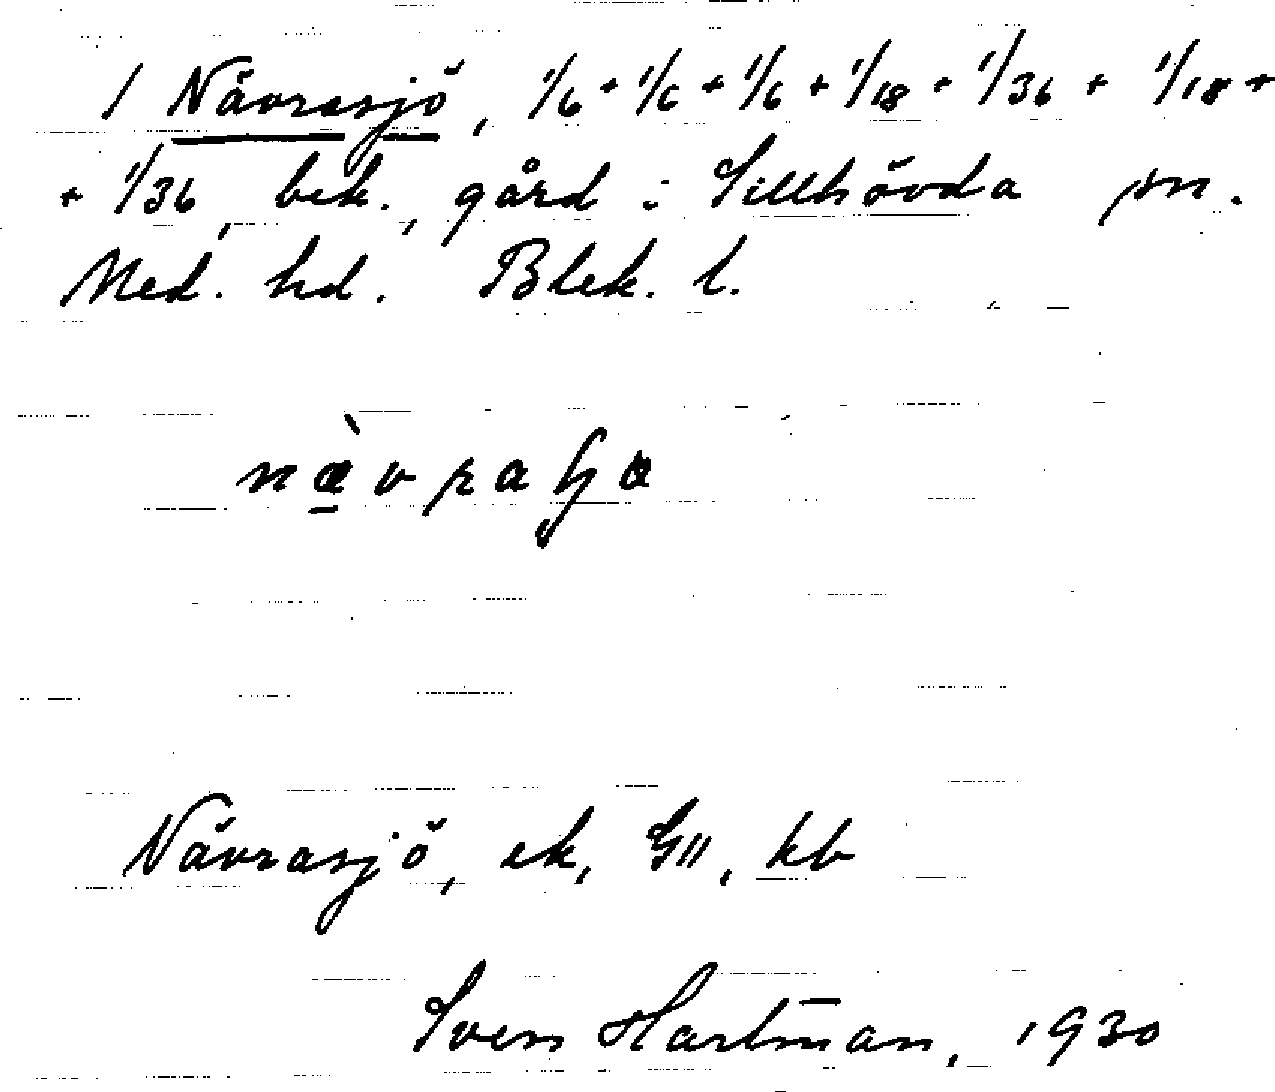 1 Nävrasjö, 1/6 + 1/6 + 1/6 + 1/18 + 1/36 + 1/18 +
+ 1/36, bek., gård i Sillhövda sn.
Med. hd. Blek. l.
Nävrasjö, ek, GII, kb
Sven Hartman, 1930